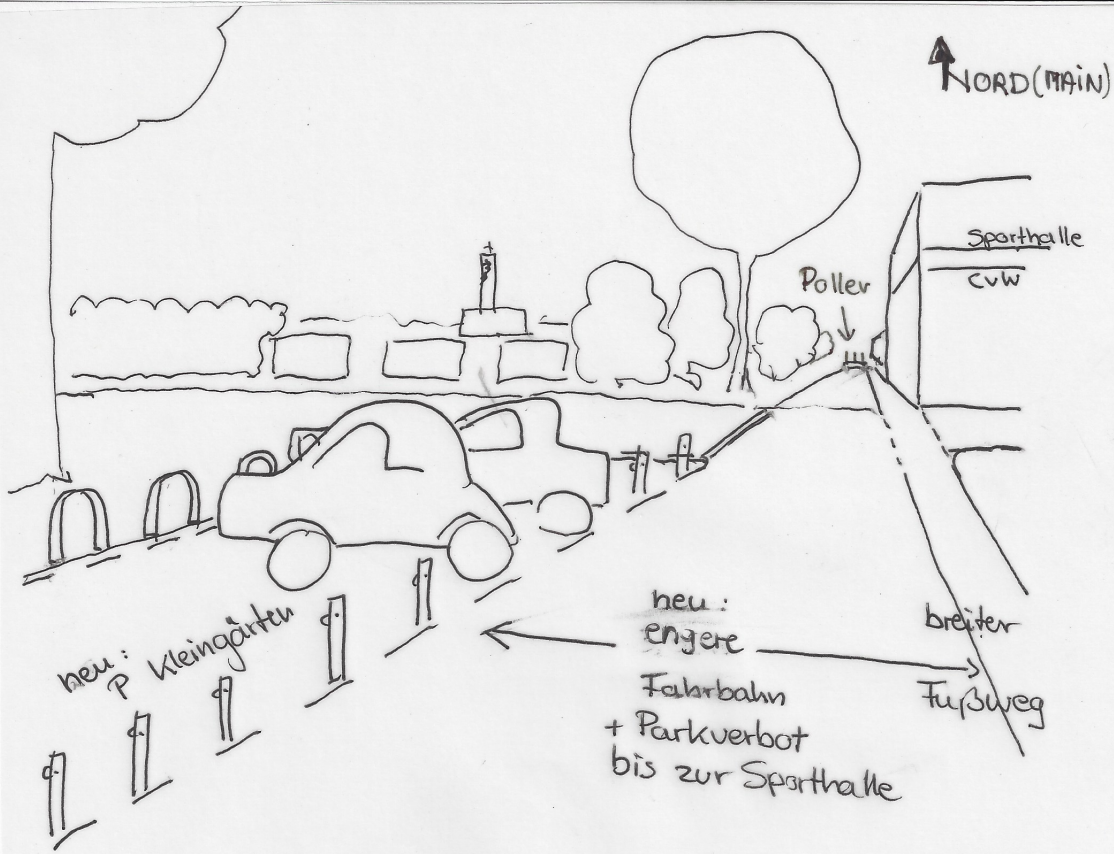 NORD (MAIN)
Sporthalle
CvW
Poller
neu:
P Kleingärten
neu:
engere
Fahrbahn
+ Parkverbot
bis zur Sporthalle
breiter
Fußweg